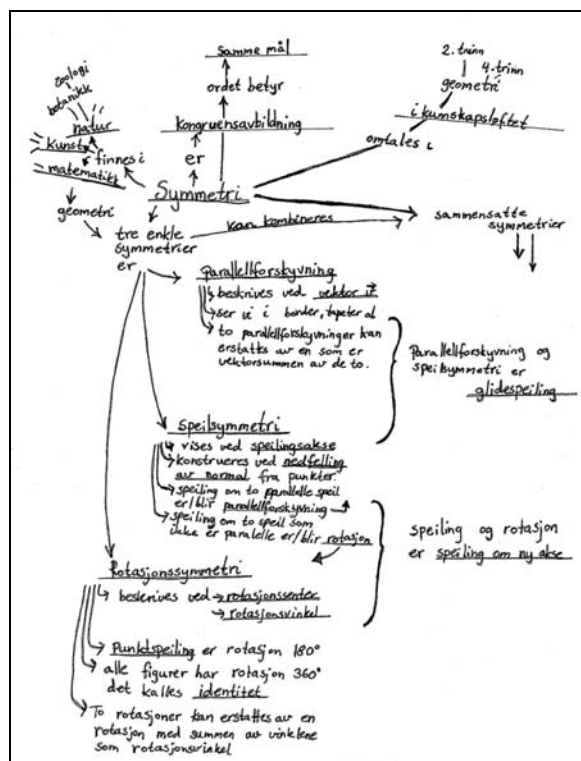 samme mål
ordet betyr
kongruensavbildning
er
2. trinn
4. trinn
geometri
i kunskapsløftet
omtales i
zoologi
botanikk
natur
kunst
matematikk
finnes i
Symmetri
geometri
tre enkle
symmetrier
er
kan kombineres
sammensatte
symmetrier
Parallellforskyvning
beskrives ved vektor v⃗
ser vi i border, tapeter al
to parallellforskyvninger kan
erstattes av en som er
vektorsummen av de to.
Parallellforskyvning og
speilsymmetri er
glidespeiling
Speilsymmetri
vises ved speilingsakse
konstrueres ved nedfelling
av normal fra punkter.
speiling om to parallelle speil
er/blir parallellforskyvning
speiling om to speil som
ikke er paralelle er/blir rotasjon
Speiling og rotasjon
er speiling om ny akse
Rotasjonssymmetri
beskrives ved rotasjonssenter
rotasjonsvinkel
Punktspeiling er rotasjon 180°
alle figurer har rotasjon 360°
det kalles identitet
To rotasjoner kan erstattes av en
rotasjon med summen av vinklene
som rotasjonsvinkel